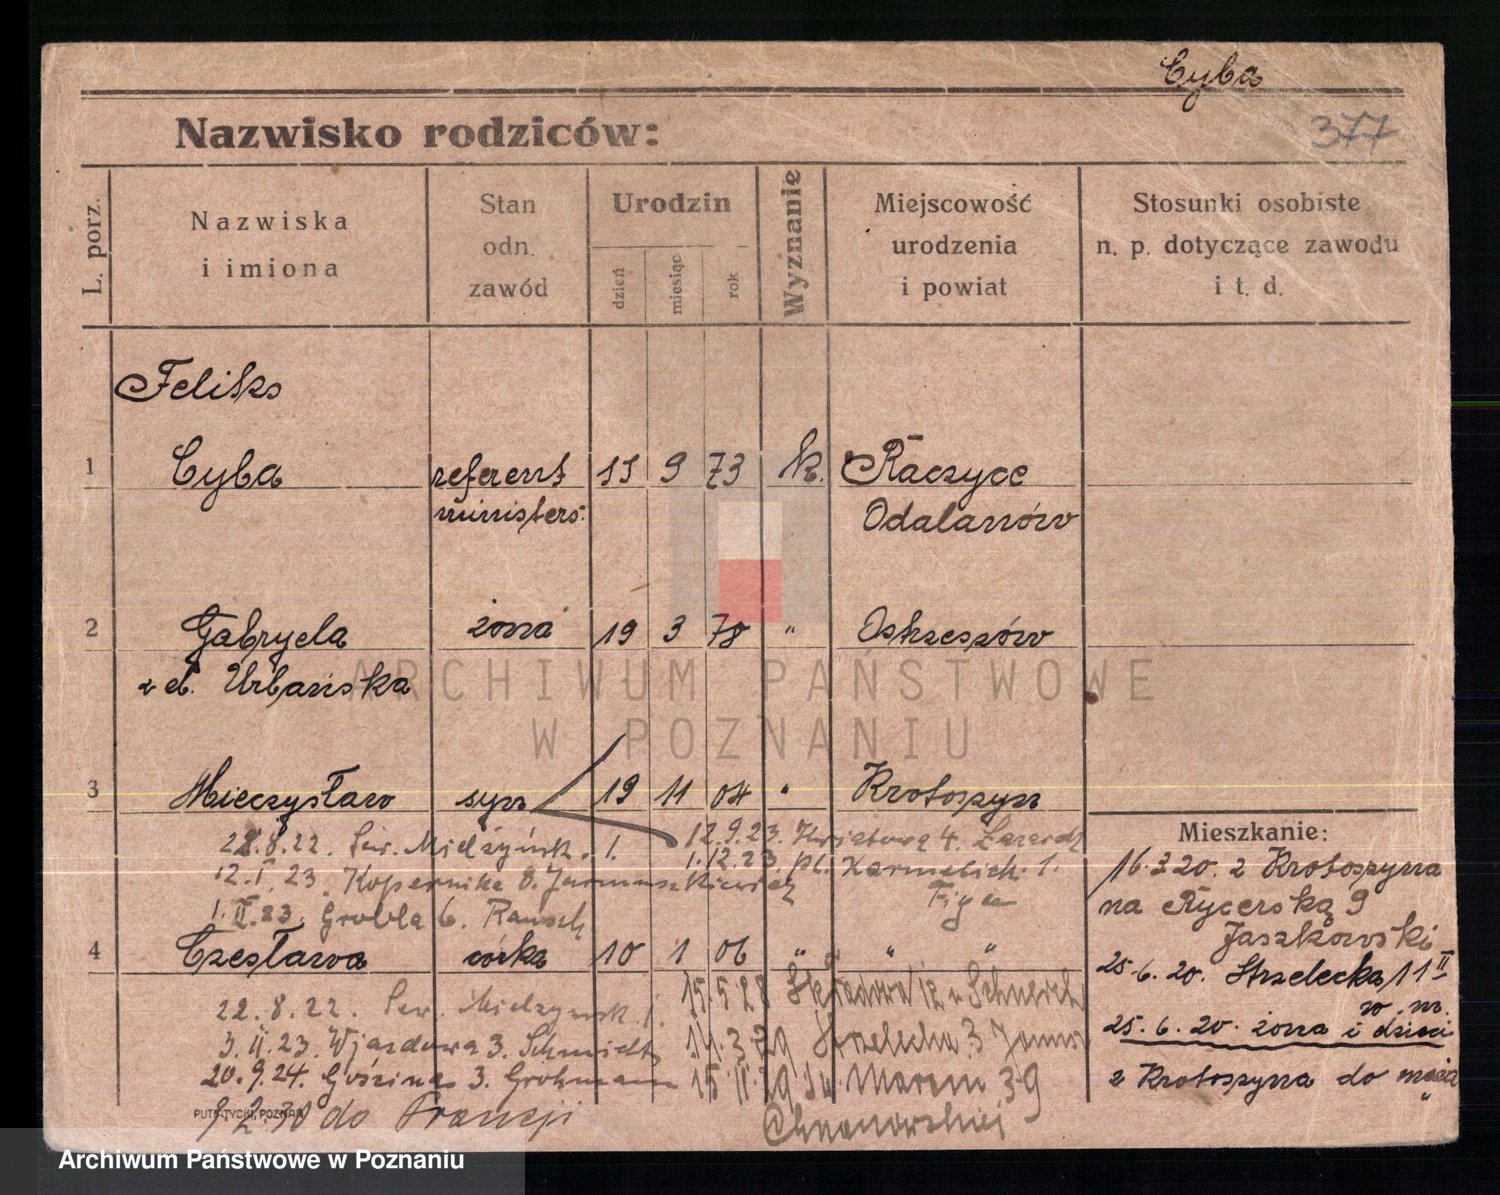 Cyba
377
Nazwisko rodziców:
L. porz.
Nazwiska
i imiona
Stan
odn.
zawód
Urodzin
dzień
miesiąc
rok
Wyznanie
Miejscowość
urodzenia
i powiat
Stosunki osobiste
n. p. dotyczące zawodu
i t. d.
Feliks
1 Cyba referent 15 9 73 k. Raczyce
minister. Odalanów
2 Gabryela żona 19 3 78 " Ostrzeszów
z d. Urbańska
ARCHIWUM PAŃSTWOWE
W POZNANIU
3 Mieczysław syn 19 11 04 " Krotoszyn
22.8.22. Sew. Mielżyńsk. 1. 12.9.23. Kwiatowa 4.
12.I.23. Kopernika 8. Jarmuszkiewicz 1.12.23. pl. Karmelick. 1.
1.II.23. Grobla 6. Rausch
4 Czesława córka 10 1 06 " " "
22.8.22. Sew. Mielżyńsk. 1. 15.5.28 Składowa 12
3.II.23. Wjazdowa 3. Schmidt 14.3.29 Strzelecka 3
20.9.24. Gościnna 3. Grohmann 15.II.29 Św. Marcin 39
PUTIATYCKI, POZNAŃ
9.2.30 do Francji
Mieszkanie:
16.3.20. z Krotoszyna
na Rycerską 9
Jaszkowski
25.6.20. Strzelecka 11 II
w. m.
25.6.20. żona i dzieci
z Krotoszyna do męża
Archiwum Państwowe w Poznaniu